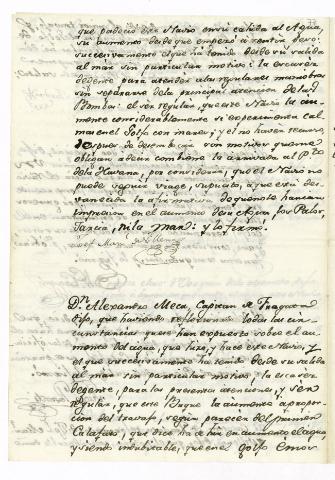 que padecio este Navio en su salida al Agua,
su aumento desde que empezó a sentir
succesivamente el que ha tenido desde su salida
al mar sin particular motivo: la escacez
de gente para atender a las regulares maniobras
sin separarse de la principal atencion de las
Bombas: el ser regular, que este Navio la au-
mente considerablemente si experimenta cal-
mas en el Golfo con mares; y el no haver
despues de desembarcar con motivos que me
obligan a decir combiene la arrivada al Pto.
de la Havana, por considerar, que el Navio no
puede seguir viage, supuesto, a que está des-
vanecida la de que no le hacian
impresion en el aumento de su Agua, ni Palos
ni la mar: y lo firmo.
Josef
Dn. Alexandro Meca, Capitan de Fragata
Dijo, que haviendo reflexionado todas las cir-
cunstancias que se han expuesto sobre el au-
mento del agua, que hizo, y hace este Navio, y
el que succesivamente ha tenido desde su salida
al mar sin particular motivo, la escacez
de gente, para las presentes atenciones, y ser
regular, que este Buque la aumente a propor-
cion del trabajo, segun parecer del primer
Calafate, que dice ha de ir en aumento el agua,
y siendo indubitable, que en el golfo